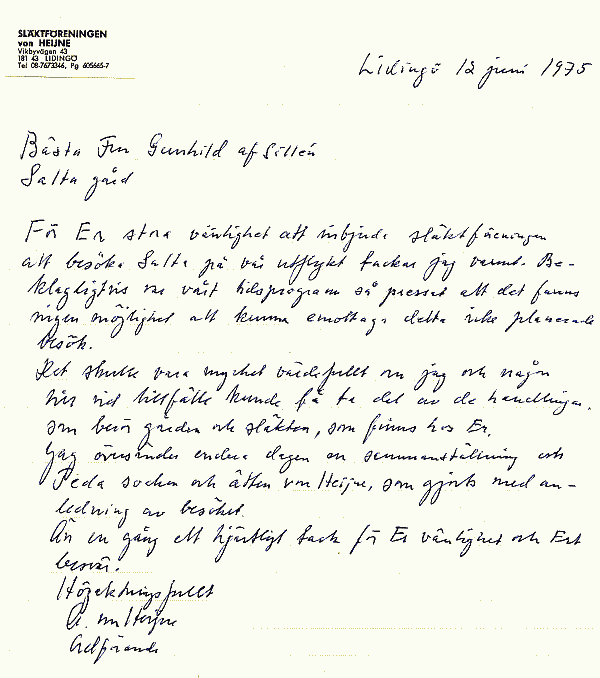 SLÄKTFÖRENINGEN
von HEIJNE
Vikbyvägen 43
181 43 LIDINGÖ
Tel 08-7673346, Pg 605665-7
Lidingö 12 juni 1975
Bästa Fru Gunhild af Sillén
Salta gård
För Er stora vänlighet att inbjuda släktföreningen
att besöka Salta på vår utflykt tackar jag varmt. Be-
klagligtvis var vårt tidsprogram så pressat att det fanns
ingen möjlighet att kunna emottaga detta icke planerade
besök.
Det skulle vara mycket värdefullt om jag och någon
vid tillfälle kunde få ta del av de handlingar,
som berör gården och släkten, som finns hos Er.
Jag översänder endera dagen en sammanställning och
Peda socken och ätten von Heijne, som gjorts med an-
ledning av besöket.
Än en gång ett hjärtligt tack för Er vänlighet och Ert
besvär.
Högaktningsfullt
G. von Heijne
Ordförande